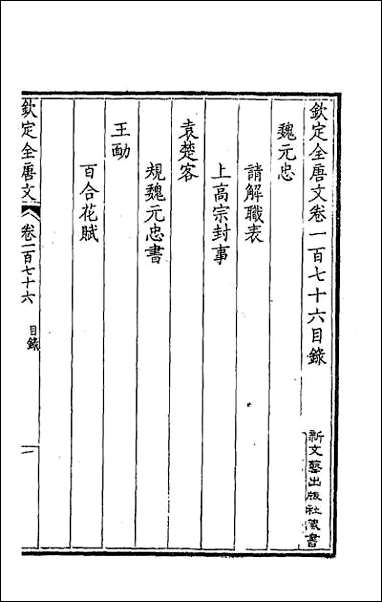 欽定全唐文卷一百七十六目錄
新文藝出版社藏書
魏元忠
請解職表
上高宗封事
袁楚客
規魏元忠書
王勔
百合花賦
欽定全唐文
卷一百七十六
目錄
一